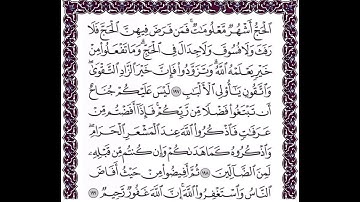 ٱلْحَجُّ أَشْهُرٌ مَّعْلُومَٰتٌ ۚ فَمَن فَرَضَ فِيهِنَّ ٱلْحَجَّ فَلَا
رَفَثَ وَلَا فُسُوقَ وَلَا جِدَالَ فِى ٱلْحَجِّ ۗ وَمَا تَفْعَلُوا۟ مِنْ
خَيْرٍ يَعْلَمْهُ ٱللَّهُ ۗ وَتَزَوَّدُوا۟ فَإِنَّ خَيْرَ ٱلزَّادِ ٱلتَّقْوَىٰ ۚ
وَٱتَّقُونِ يَٰٓأُو۟لِى ٱلْأَلْبَٰبِ ١٩٧ لَيْسَ عَلَيْكُمْ جُنَاحٌ
أَن تَبْتَغُوا۟ فَضْلًا مِّن رَّبِّكُمْ ۚ فَإِذَآ أَفَضْتُم مِّنْ
عَرَفَٰتٍ فَٱذْكُرُوا۟ ٱللَّهَ عِندَ ٱلْمَشْعَرِ ٱلْحَرَامِ ۖ
وَٱذْكُرُوهُ كَمَا هَدَىٰكُمْ وَإِن كُنتُم مِّن قَبْلِهِۦ
لَمِنَ ٱلضَّآلِّينَ ١٩٨ ثُمَّ أَفِيضُوا۟ مِنْ حَيْثُ أَفَاضَ
ٱلنَّاسُ وَٱسْتَغْفِرُوا۟ ٱللَّهَ ۚ إِنَّ ٱللَّهَ غَفُورٌ رَّحِيمٌ ١٩٩